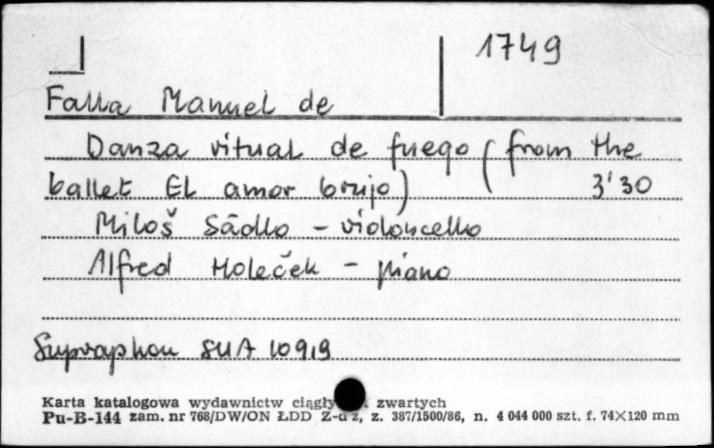 1749
Falla Manuel de
Danza ritual de fuego (from the
ballet El amor brujo) 3'30
Miloš Sádlo - violoncello
Alfred Holeček - piano
Supraphon SUA 10919
Karta katalogowa wydawnictw zwartych
Pu-B-144 zam. nr 768/DW/ON ŁDD z. 387/1500/86, n. 4 044 000 szt. f. 74×120 mm